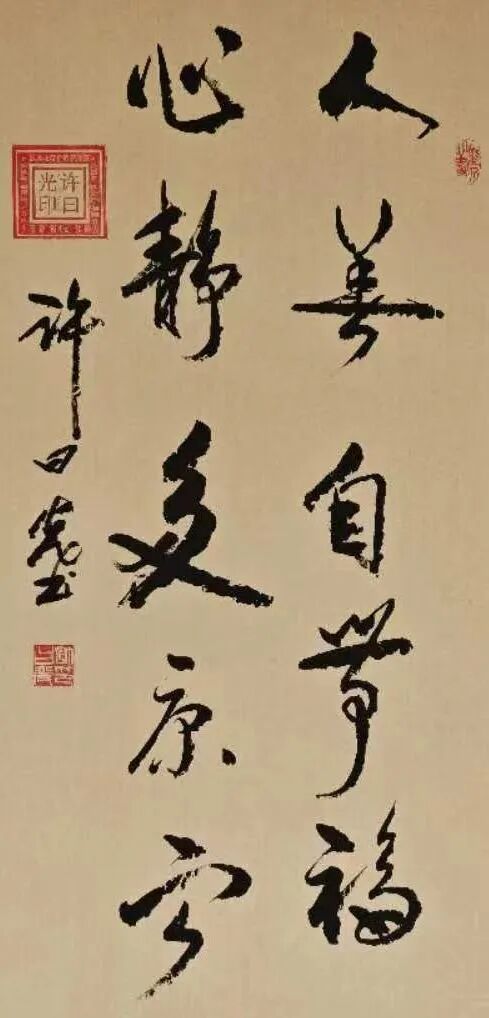 人善自带福
心静多康宁
许日光书
许日光印